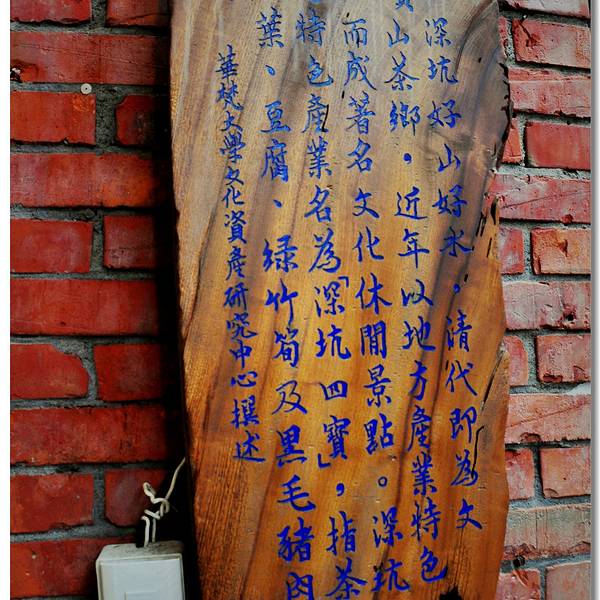 深坑好山好水。清代即為文
山茶鄉，近年以地方產業特色
而成著名文化休閒景點。深坑
特色產業名為「深坑四寶」，指茶
葉、豆腐、綠竹筍及黑毛豬肉
華梵大學文化資產研究中心撰述